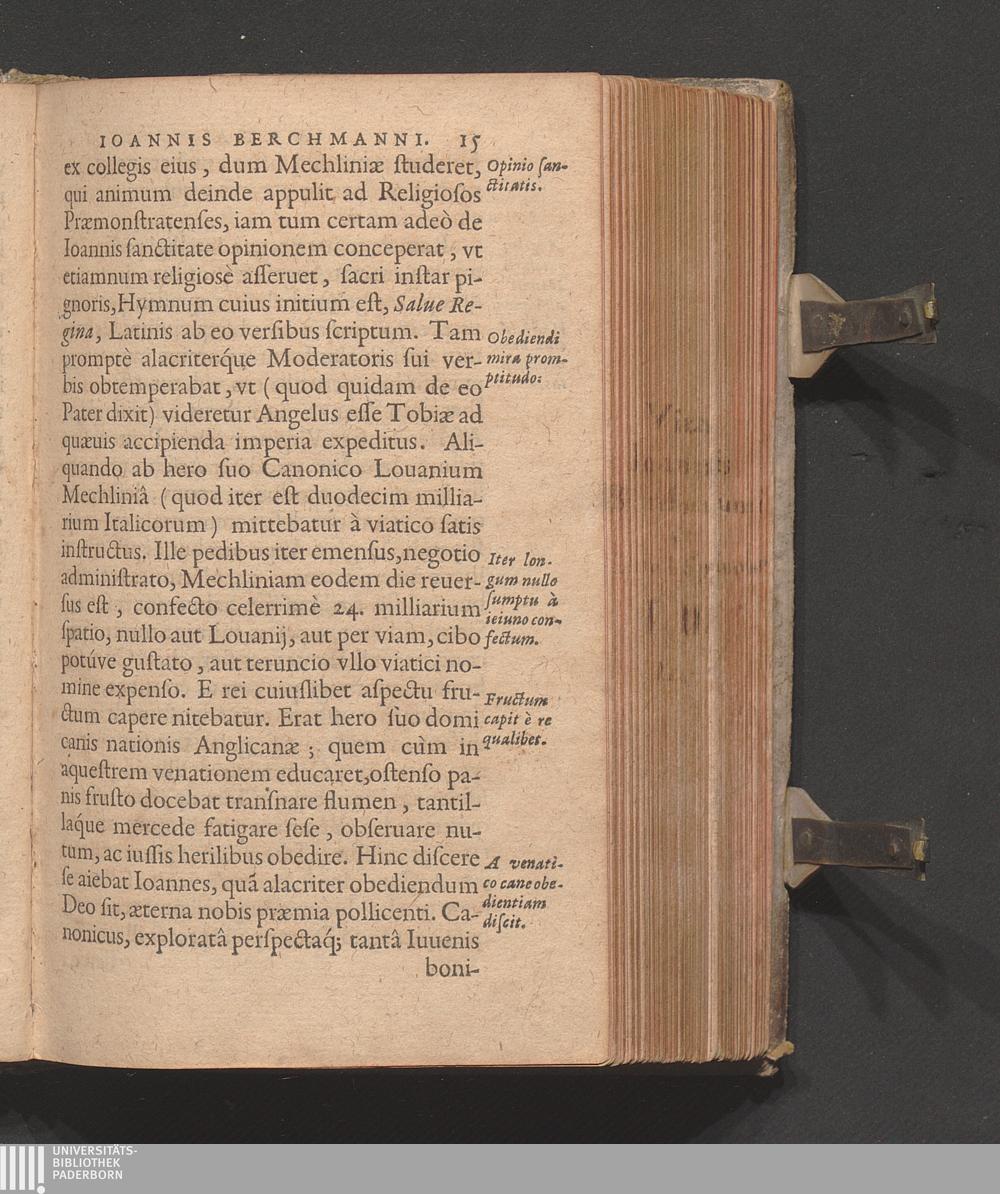 IOANNIS BERCHMANNI. 15
ex collegis eius, dum Mechliniæ ſtuderet,
qui animum deinde appulit ad Religioſos
Præmonſtratenſes, iam tum certam adeò de
Ioannis ſanctitate opinionem conceperat, vt
etiamnum religiosè aſſeruet, ſacri inſtar pi-
gnoris, Hymnum cuius initium eſt, Salue Re-
gina, Latinis ab eo verſibus ſcriptum. Tam
promptè alacriterq́ue Moderatoris ſui ver-
bis obtemperabat, vt (quod quidam de eo
Pater dixit) videretur Angelus eſſe Tobiæ ad
quæuis accipienda imperia expeditus. Ali-
quando ab hero ſuo Canonico Louanium
Mechliniâ (quod iter eſt duodecim millia-
rium Italicorum) mittebatur à viatico ſatis
inſtructus. Ille pedibus iter emenſus, negotio
adminiſtrato, Mechliniam eodem die reuer-
ſus eſt, confecto celerrimè 24. milliarium
ſpatio, nullo aut Louanij, aut per viam, cibo
potúve guſtato, aut teruncio vllo viatici no-
mine expenſo. E rei cuiuſlibet aſpectu fru-
ctum capere nitebatur. Erat hero ſuo domi
canis nationis Anglicanæ; quem cùm in
aqueſtrem venationem educaret, oſtenſo pa-
nis fruſto docebat tranſnare flumen, tantil-
laq́ue mercede fatigare ſeſe, obſeruare nu-
tum, ac iuſſis herilibus obedire. Hinc diſcere
ſe aiebat Ioannes, quã alacriter obediendum
Deo ſit, æterna nobis præmia pollicenti. Ca-
nonicus, exploratâ perſpectaq́; tantâ Iuuenis
boni-
Opinio ſan-
ctitatis.
Obediendi
mira prom-
ptitudo:
Iter lon-
gum nullo
ſumptu à
ieiuno con-
fectum.
Fructum
capit è re
qualibet.
A venati-
co cane obe-
dientiam
diſcit.
Vita
Joannis
UNIVERSITÄTS-
BIBLIOTHEK
PADERBORN